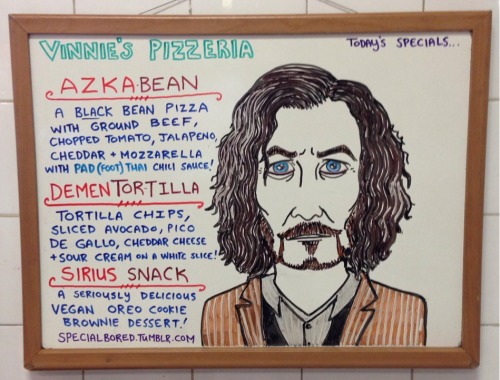 VINNIE'S PIZZERIA
TODAY'S SPECIALS...
AZKA·BEAN
A BLACK BEAN PIZZA
WITH GROUND BEEF,
CHOPPED TOMATO, JALAPENO,
CHEDDAR + MOZZARELLA
WITH PAD(FOOT)THAI CHILI SAUCE!
DEMENTORTILLA
TORTILLA CHIPS,
SLICED AVOCADO, PICO
DE GALLO, CHEDDAR CHEESE
+ SOUR CREAM ON A WHITE SLICE!
SIRIUS SNACK
A SERIOUSLY DELICIOUS
VEGAN OREO COOKIE
BROWNIE DESSERT!
SPECIALBORED.TUMBLR.COM